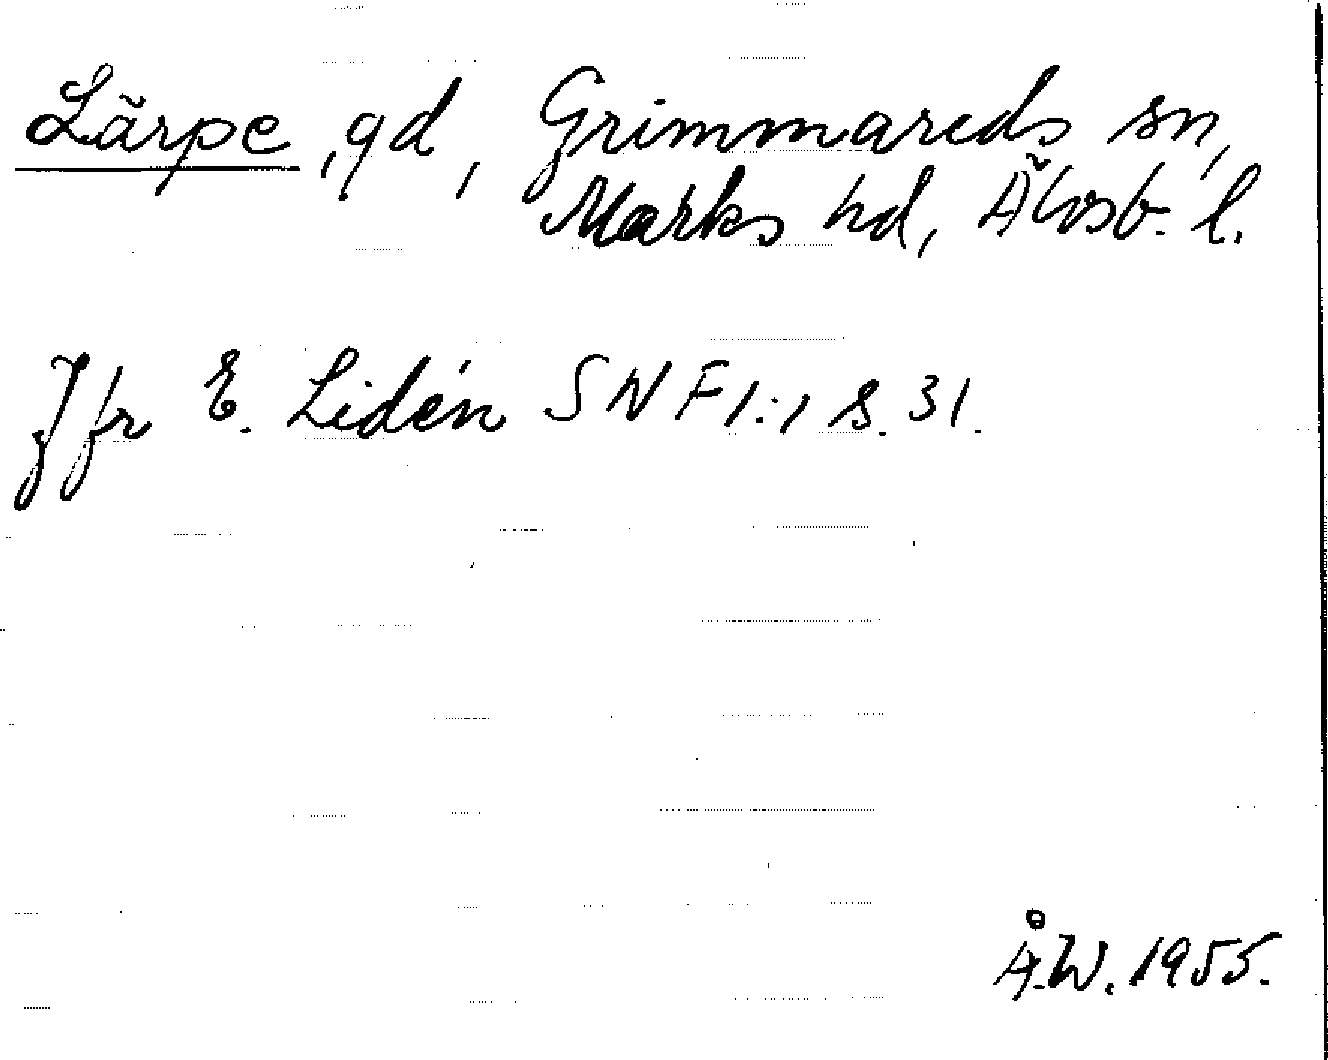 Lärpe, gd, Grimmareds sn,
Marks hd, Älvsb. l.
Jfr E. Lidén SNF 1:1 s. 31.
Å.W. 1955.